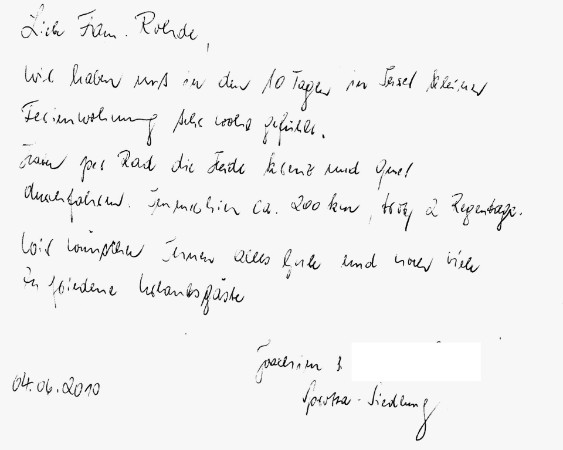 Liebe Frau. Rohde,
wir haben uns in den 10 Tagen in Ihrer kleinen
Ferienwohnung sehr wohl gefühlt.
per Rad die Heide kreuz und quer
durchfahren. Immerhin ca. 200 km, trotz 2 Regentage.
Wir wünschen Ihnen alles Gute und noch viele
zufriedene Urlaubsgäste
Joachim
04.06.2010
Siedlung